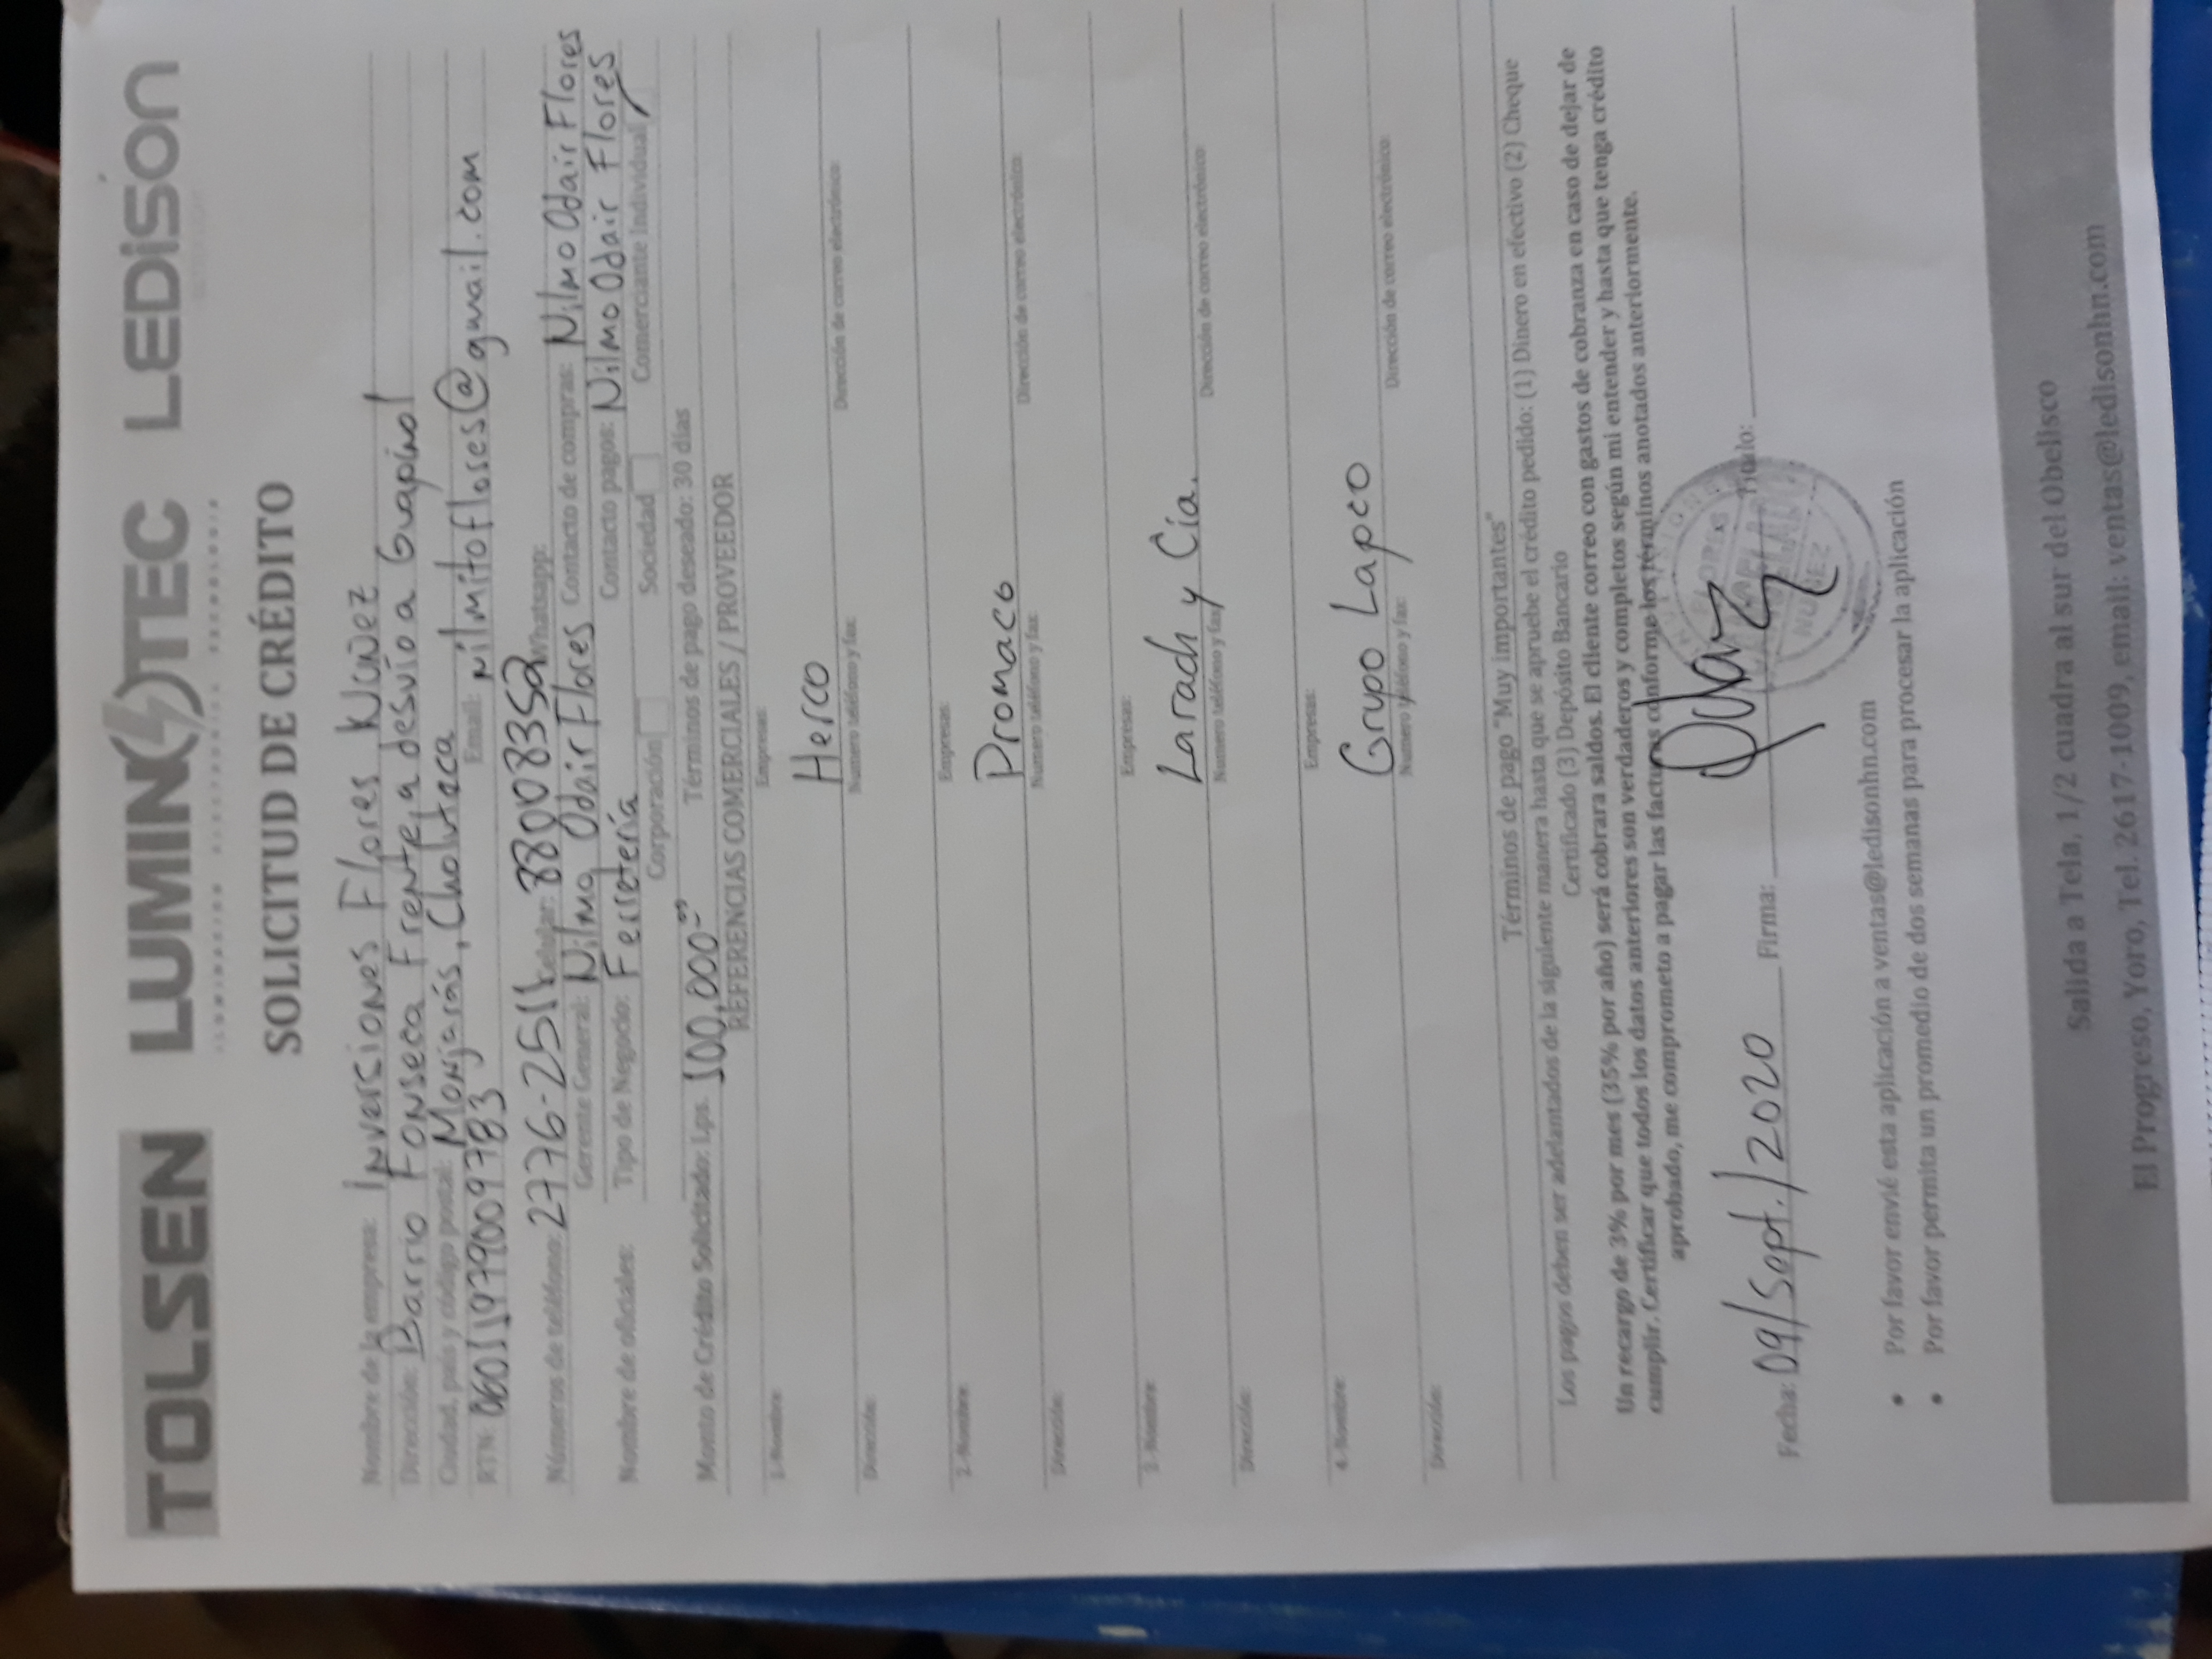 TOLSEN LUMINOTEC LEDISON
ILUMINACION ELECTRONICA TECNOLOGIA
SOLICITUD DE CRÉDITO
Nombre de la empresa: Inversiones Flores Nuñez
Dirección: Barrio Fonseca Frente a desvío a Guapinol
Ciudad, país y código postal: Monjarás, Choluteca
RTN: 06011979009783 Email: nilmitoflores@gmail.com
Números de teléfono: 2776-2511 Celular: 88008352 Whatsapp:
Gerente General: Nilmo Odair Flores Contacto de compras: Nilmo Odair Flores
Nombre de oficiales: Tipo de Negocio: Ferretería Contacto pagos: Nilmo Odair Flores
Corporación Sociedad Comerciante Individual
Monto de Crédito Solicitado: Lps. 100,000.00 Términos de pago deseado: 30 días
REFERENCIAS COMERCIALES / PROVEEDOR
1.-Nombre: Empresas:
Herco
Dirección: Numero teléfono y fax: Dirección de correo electrónico:
2.-Nombre: Empresas:
Promaco
Dirección: Numero teléfono y fax: Dirección de correo electrónico:
3.-Nombre: Empresas:
Larach y Cía.
Dirección: Numero teléfono y fax: Dirección de correo electrónico:
4.-Nombre: Empresas:
Grupo Lapco
Dirección: Numero teléfono y fax: Dirección de correo electrónico:
Términos de pago "Muy importantes"
Los pagos deben ser adelantados de la siguiente manera hasta que se apruebe el crédito pedido: (1) Dinero en efectivo (2) Cheque
Certificado (3) Depósito Bancario
Un recargo de 3% por mes (35% por año) será cobrara saldos. El cliente correo con gastos de cobranza en caso de dejar de
cumplir. Certificar que todos los datos anteriores son verdaderos y completos según mi entender y hasta que tenga crédito
aprobado, me comprometo a pagar las facturas conforme los términos anotados anteriormente.
INVERSIONES
FLORES
CANCELADO
NUÑEZ
Fecha: 09/Sept./2020 Firma: Título:
• Por favor envié esta aplicación a ventas@ledisonhn.com
• Por favor permita un promedio de dos semanas para procesar la aplicación
Salida a Tela, 1/2 cuadra al sur del Obelisco
El Progreso, Yoro, Tel. 2617-1009, email: ventas@ledisonhn.com